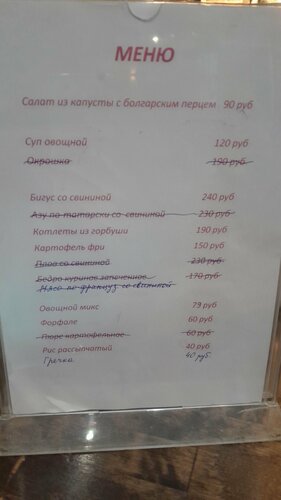 МЕНЮ
Салат из капусты с болгарским перцем 90 руб
Суп овощнай 120 руб
Окрошка 190 руб
Бигус со свининой 240 руб
Азу по татарски со свининой 230 руб
Котлеты из горбуши 190 руб
Картофель фри 150 руб
Плов со свининой 230 руб
Бедро куриное запеченное 170 руб
Мясо по француз со свининой
Овощной микс 79 руб
Форфале 60 руб
Пюре картофельное 60 руб
Рис рассыпчатый 40 руб
Гречка 40 руб